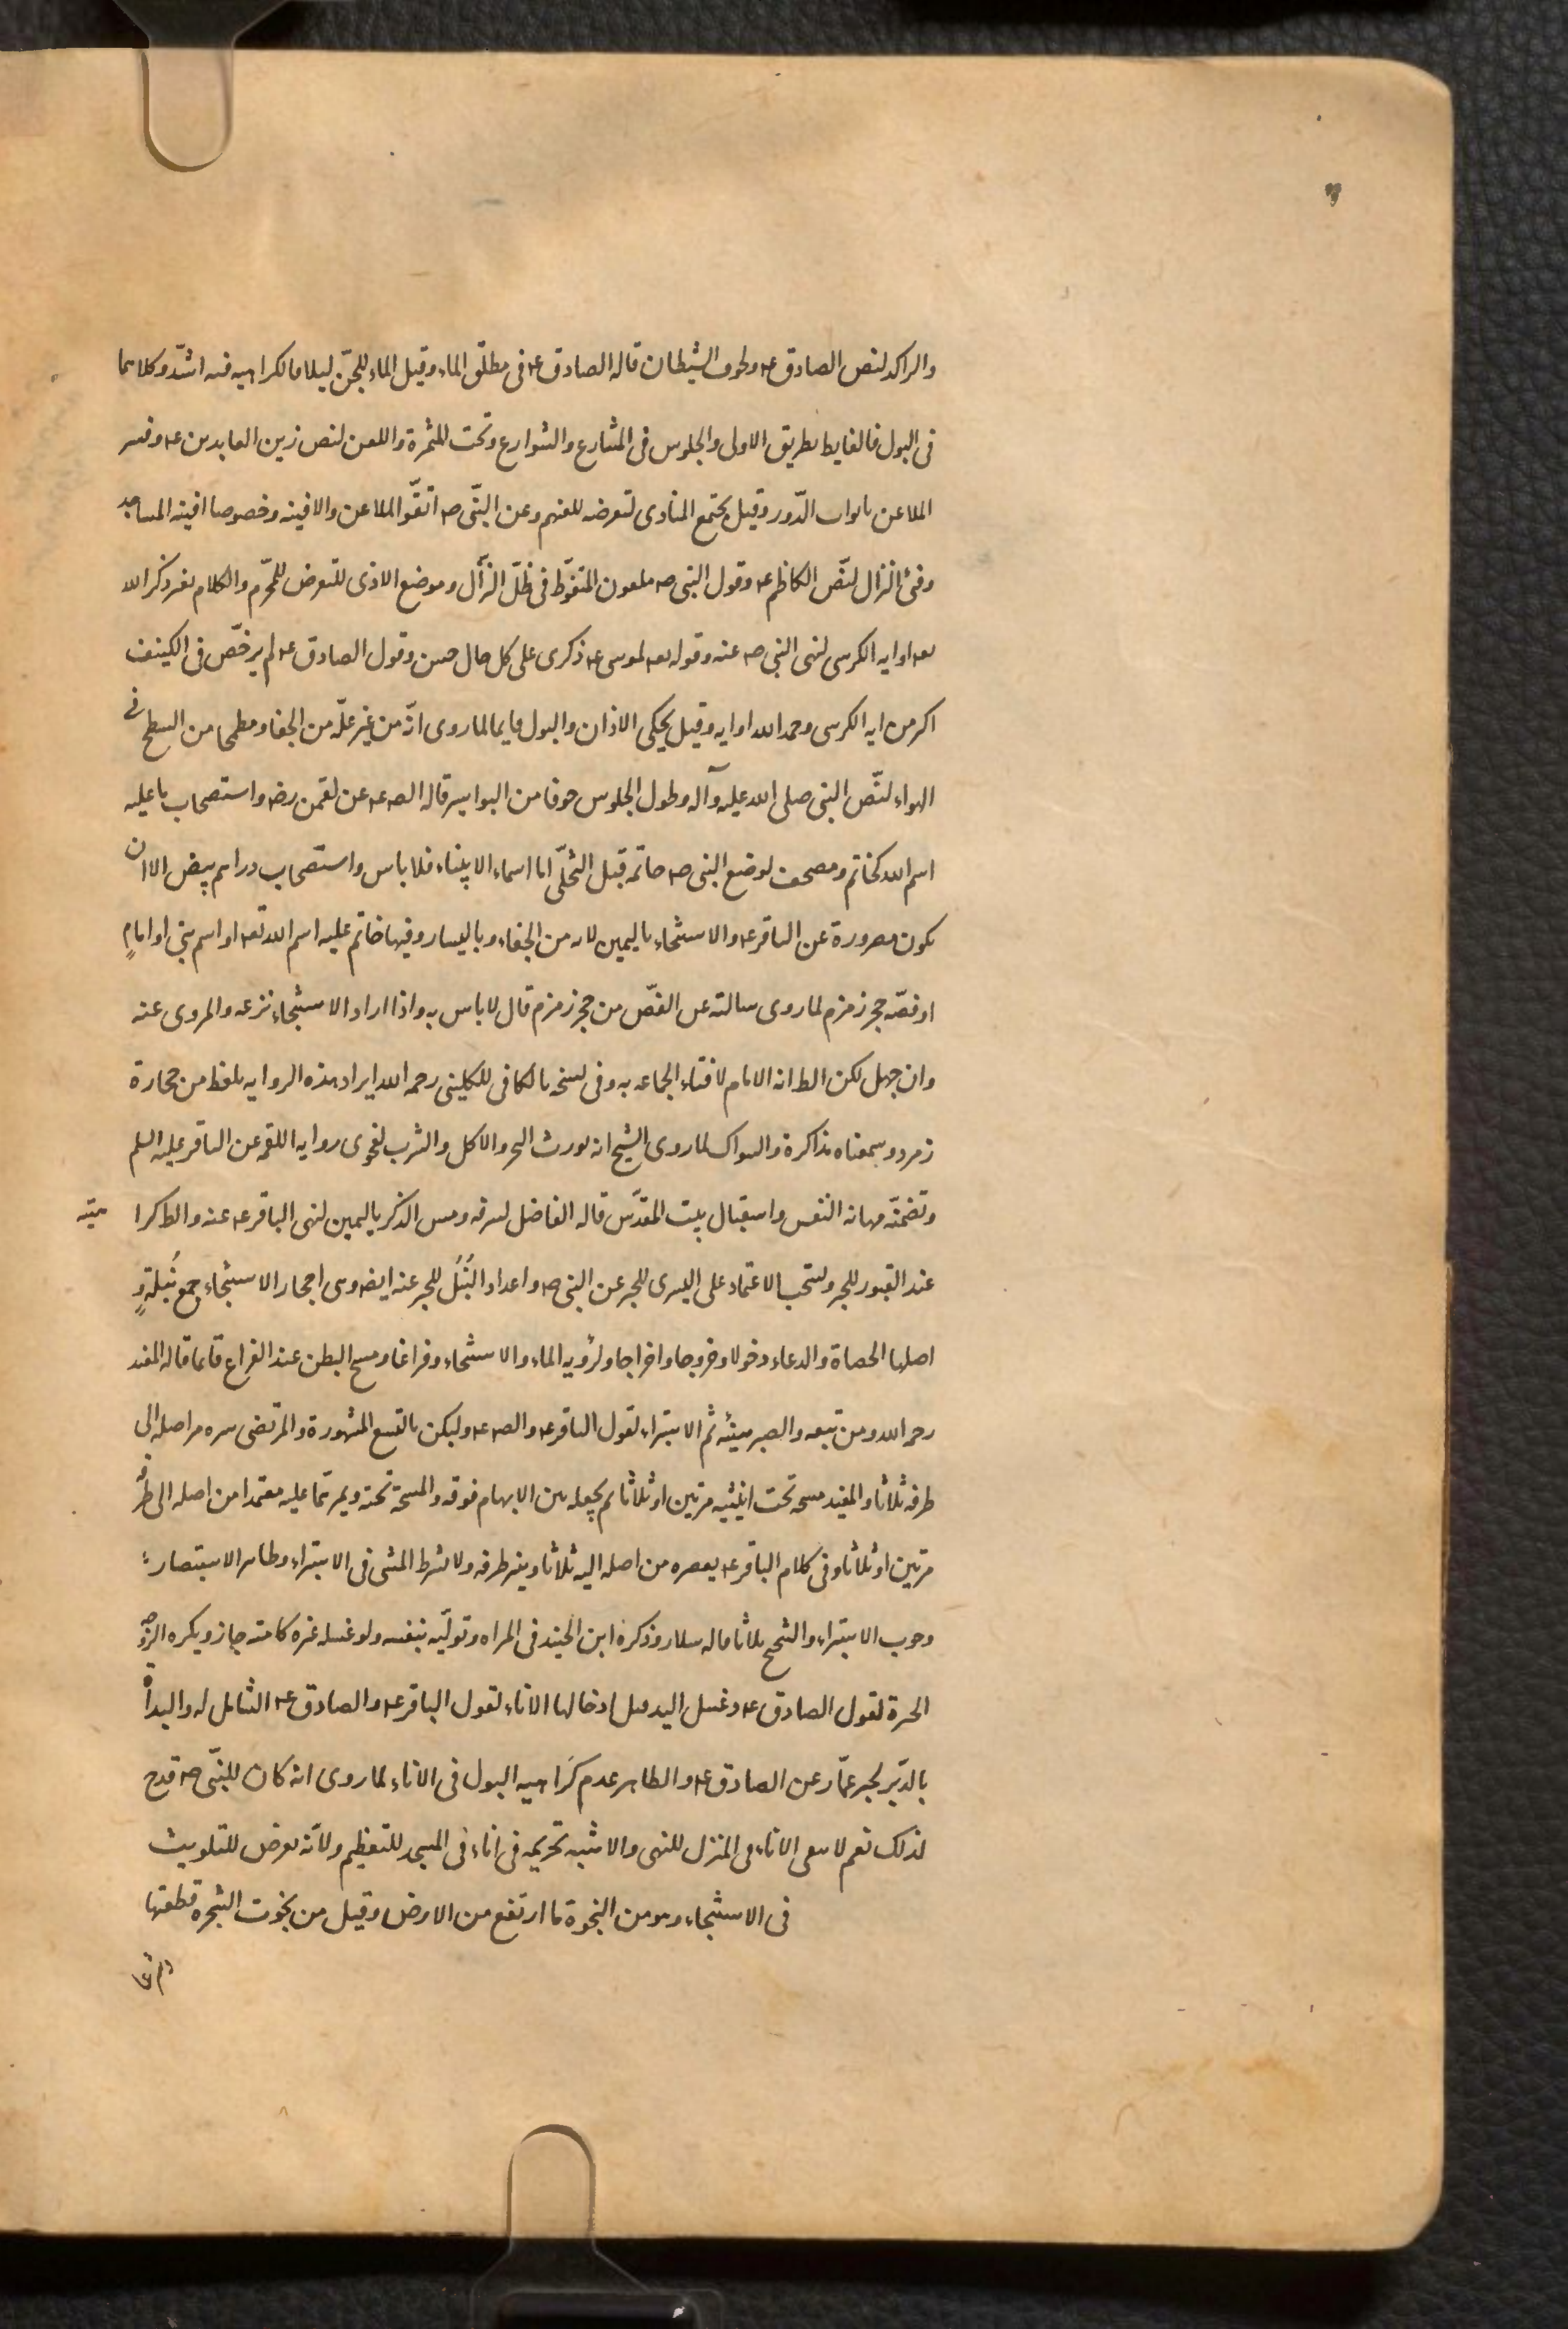 والراكد لنص الصادق ع ولخوف الشيطان قاله الصادق ع فى مطلق الماء وقيل الماء للجن ليلا فالكراهيه فيه اشد وكلاهما
فى البول فالغايط بطريق الاولى والجلوس فى المشارع والشوارع وتحت المثمرة واللعن لنص زين العابدين ع وفسر
الملاعن بابواب الدور وقيل مجتمع النادى لتعرضه للعنهم وعن النبى ص اتقوا الملاعن والافنيه وخصوصا افنيه المساجد
وفئ النزال لنص الكاظم ع وقول النبى ص ملعون المتغوط فى ظل النزال وموضع الاذى للتعرض للمحرم والكلام بغير ذكر الله
تعه او ايه الكرسى لنهى النبى ص عنه وقوله تعه لموسى ع ذكرى على كل حال حسن وقول الصادق ع لم يرخص فى الكنيف
اكثر من ايه الكرسى وحمد الله او ايه وقيل يحكى الاذان والبول قايما لما روى انه من غير علة من الجفاء ومطمحا من السطح فى
الهواء لنص النبى صلى الله عليه وآله وطول الجلوس خوفا من البواسير قاله الصه ع عن لقمن رضه واستصحاب ما عليه
اسم الله كخاتم ومصحف لوضع النبى ص خاتمه قبل التخلى اما اسماء الانبياء فلا باس واستصحاب دراهم بيض الا ان
يكون مصرورة عن الباقر ع والاستنجاء باليمين لانه من الجفاء وباليسار وفيها خاتم عليه اسم الله تعه او اسم نبى او امام
او فصه حجر زمزم لما روى سالته عن الفص من حجر زمزم قال لا باس به واذا اراد الاستنجاء نزعه والمروى عنه
وان جهل لكن الظ انه الامام لافتاء الجماعه به وفى نسخه بالكافى للكلينى رحمه الله ايراد هذه الروايه بلفظ من حجارة
زمرد وسمعناه مذاكرة والسواك لما روى الشيخ انه يورث البخر والاكل والشرب لفحوى روايه اللقمه عن الباقر عليه السلم
وتضمنه مهانه النفس واستقبال بيت المقدس قاله الفاضل لشرفه ومس الذكر باليمين لنهى الباقر ع عنه والظ كراهيته
عند القبور للخبر ويستحب الاعتماد على اليسرى للخبر عن النبى ص واعداد النُبَل للخبر عنه ايضه وهى احجار الاستنجاء جمع نُبلة و
اصلها الحصاة والدعاء دخولا وخروجا واخراجا ولرؤيه الماء والاستنجاء وفراغا ومسح البطن عند الفراغ قائما قاله المفيد
رحمه الله ومن تبعه والصبر هنيئه ثم الاستبراء لقول الباقر ع والصه ع وليكن بالتسع المشهورة والمرتضى نتره من اصله الى
طرفه ثلاثا والمفيد مسحه تحت انثييه مرتين او ثلاثا ثم يجعله بين الابهام فوقه والمسبحة تحته ويمرهما عليه معتمدا من اصله الى طرفه
مرتين او ثلاثا وفى كلام الباقر ع يعصره من اصله اليه ثلاثا وينتر طرفه ولا يشرط المشى فى الاستبراء وظاهر الاستبصار
وجوب الاستبراء والتنحنح ثلاثا قاله سلار وذكره ابن الجنيد فى المراه وتوليه بنفسه ولو غسله غيره كامته جاز ويكره الزوجه
الحرة لقول الصادق ع وغسل اليد قبل ادخالها الاناء لقول الباقر ع والصادق ع الشامل له والبدأة
بالدبر لخبر عمار عن الصادق ع والظاهر عدم كراهيه البول فى الاناء لما روى انه كان للنبى ص قدح
لذلك نعم لا يبقى الاناء فى المنزل للنهى والاشبه تحريمه فى اناء فى المسجد للتعظيم ولانه يعرض للتلويث
فى الاستنجاء وهو من النجوة ما ارتفع من الارض وقيل من نجوت الشجرة قطعتها